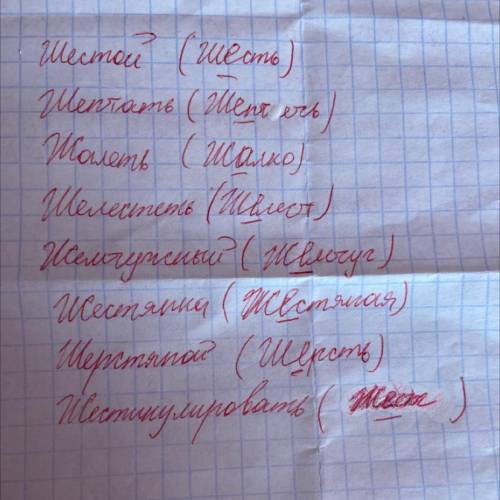 Шестой (Шесть)
Шептать (Шепт ечь)
Жалеть (Жалко)
Шелестеть (Шелест)
Жемчужный (Жемчуг)
Жестянка (Жестяная)
Шерстяной (Шерсть)
Жестикулировать ( )